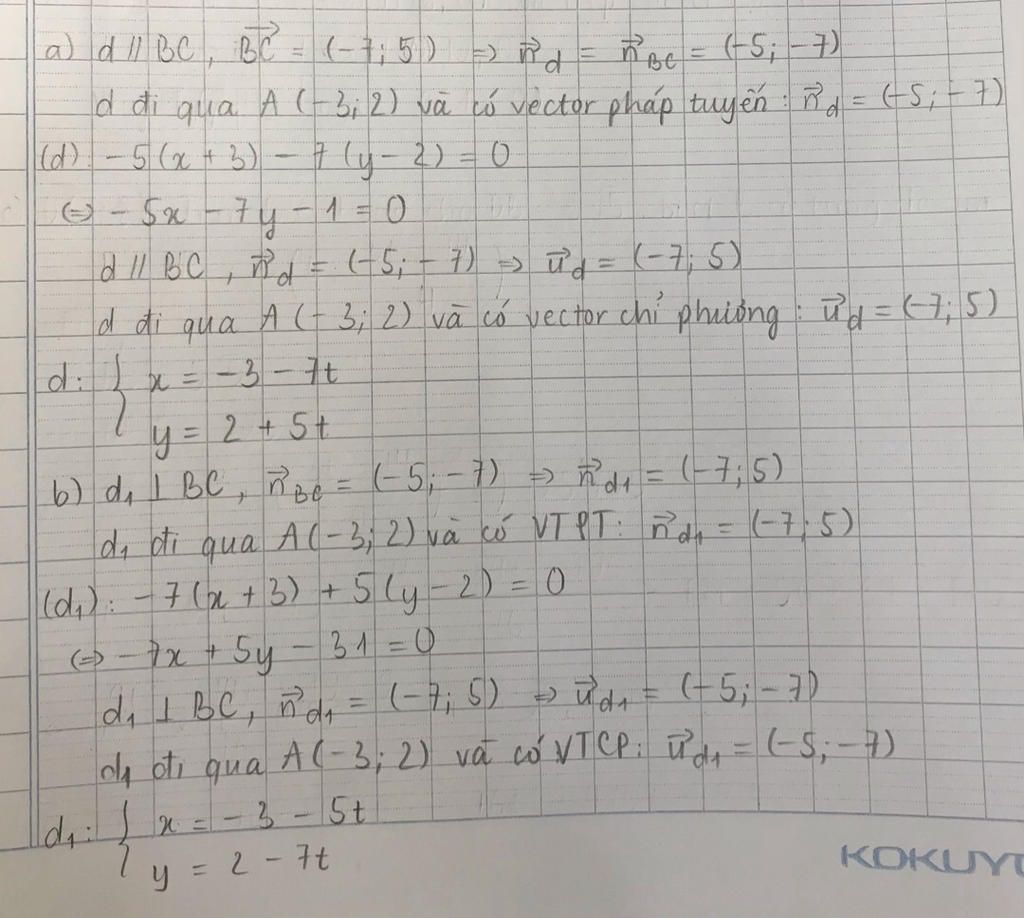 a) d // BC, →BC = (-7; 5) ⇒ →n_d = →n_BC = (-5; -7)
d đi qua A (-3; 2) và có vector pháp tuyến : →n_d = (-5; -7)
(d): -5(x + 3) - 7(y - 2) = 0
⇔ -5x - 7y - 1 = 0
d // BC, →n_d = (-5; -7) ⇒ →u_d = (-7; 5)
d đi qua A (-3; 2) và có vector chỉ phương : →u_d = (-7; 5)
d: { x = -3 - 7t
y = 2 + 5t
b) d₁ ⊥ BC, →n_BC = (-5; -7) ⇒ →n_d₁ = (-7; 5)
d₁ đi qua A(-3; 2) và có VTPT: →n_d₁ = (-7; 5)
(d₁): -7(x + 3) + 5(y - 2) = 0
⇔ -7x + 5y - 31 = 0
d₁ ⊥ BC, →n_d₁ = (-7; 5) ⇒ →u_d₁ = (-5; -7)
d₁ đi qua A(-3; 2) và có VTCP: →u_d₁ = (-5; -7)
d₁: { x = -3 - 5t
y = 2 - 7t
KOKUY